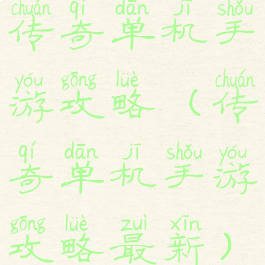 chuán qí dān jī shǒu
传奇单机手
yóu gōng lüè chuán
游攻略（传
qí dān jī shǒu yóu
奇单机手游
gōng lüè zuì xīn
攻略最新）